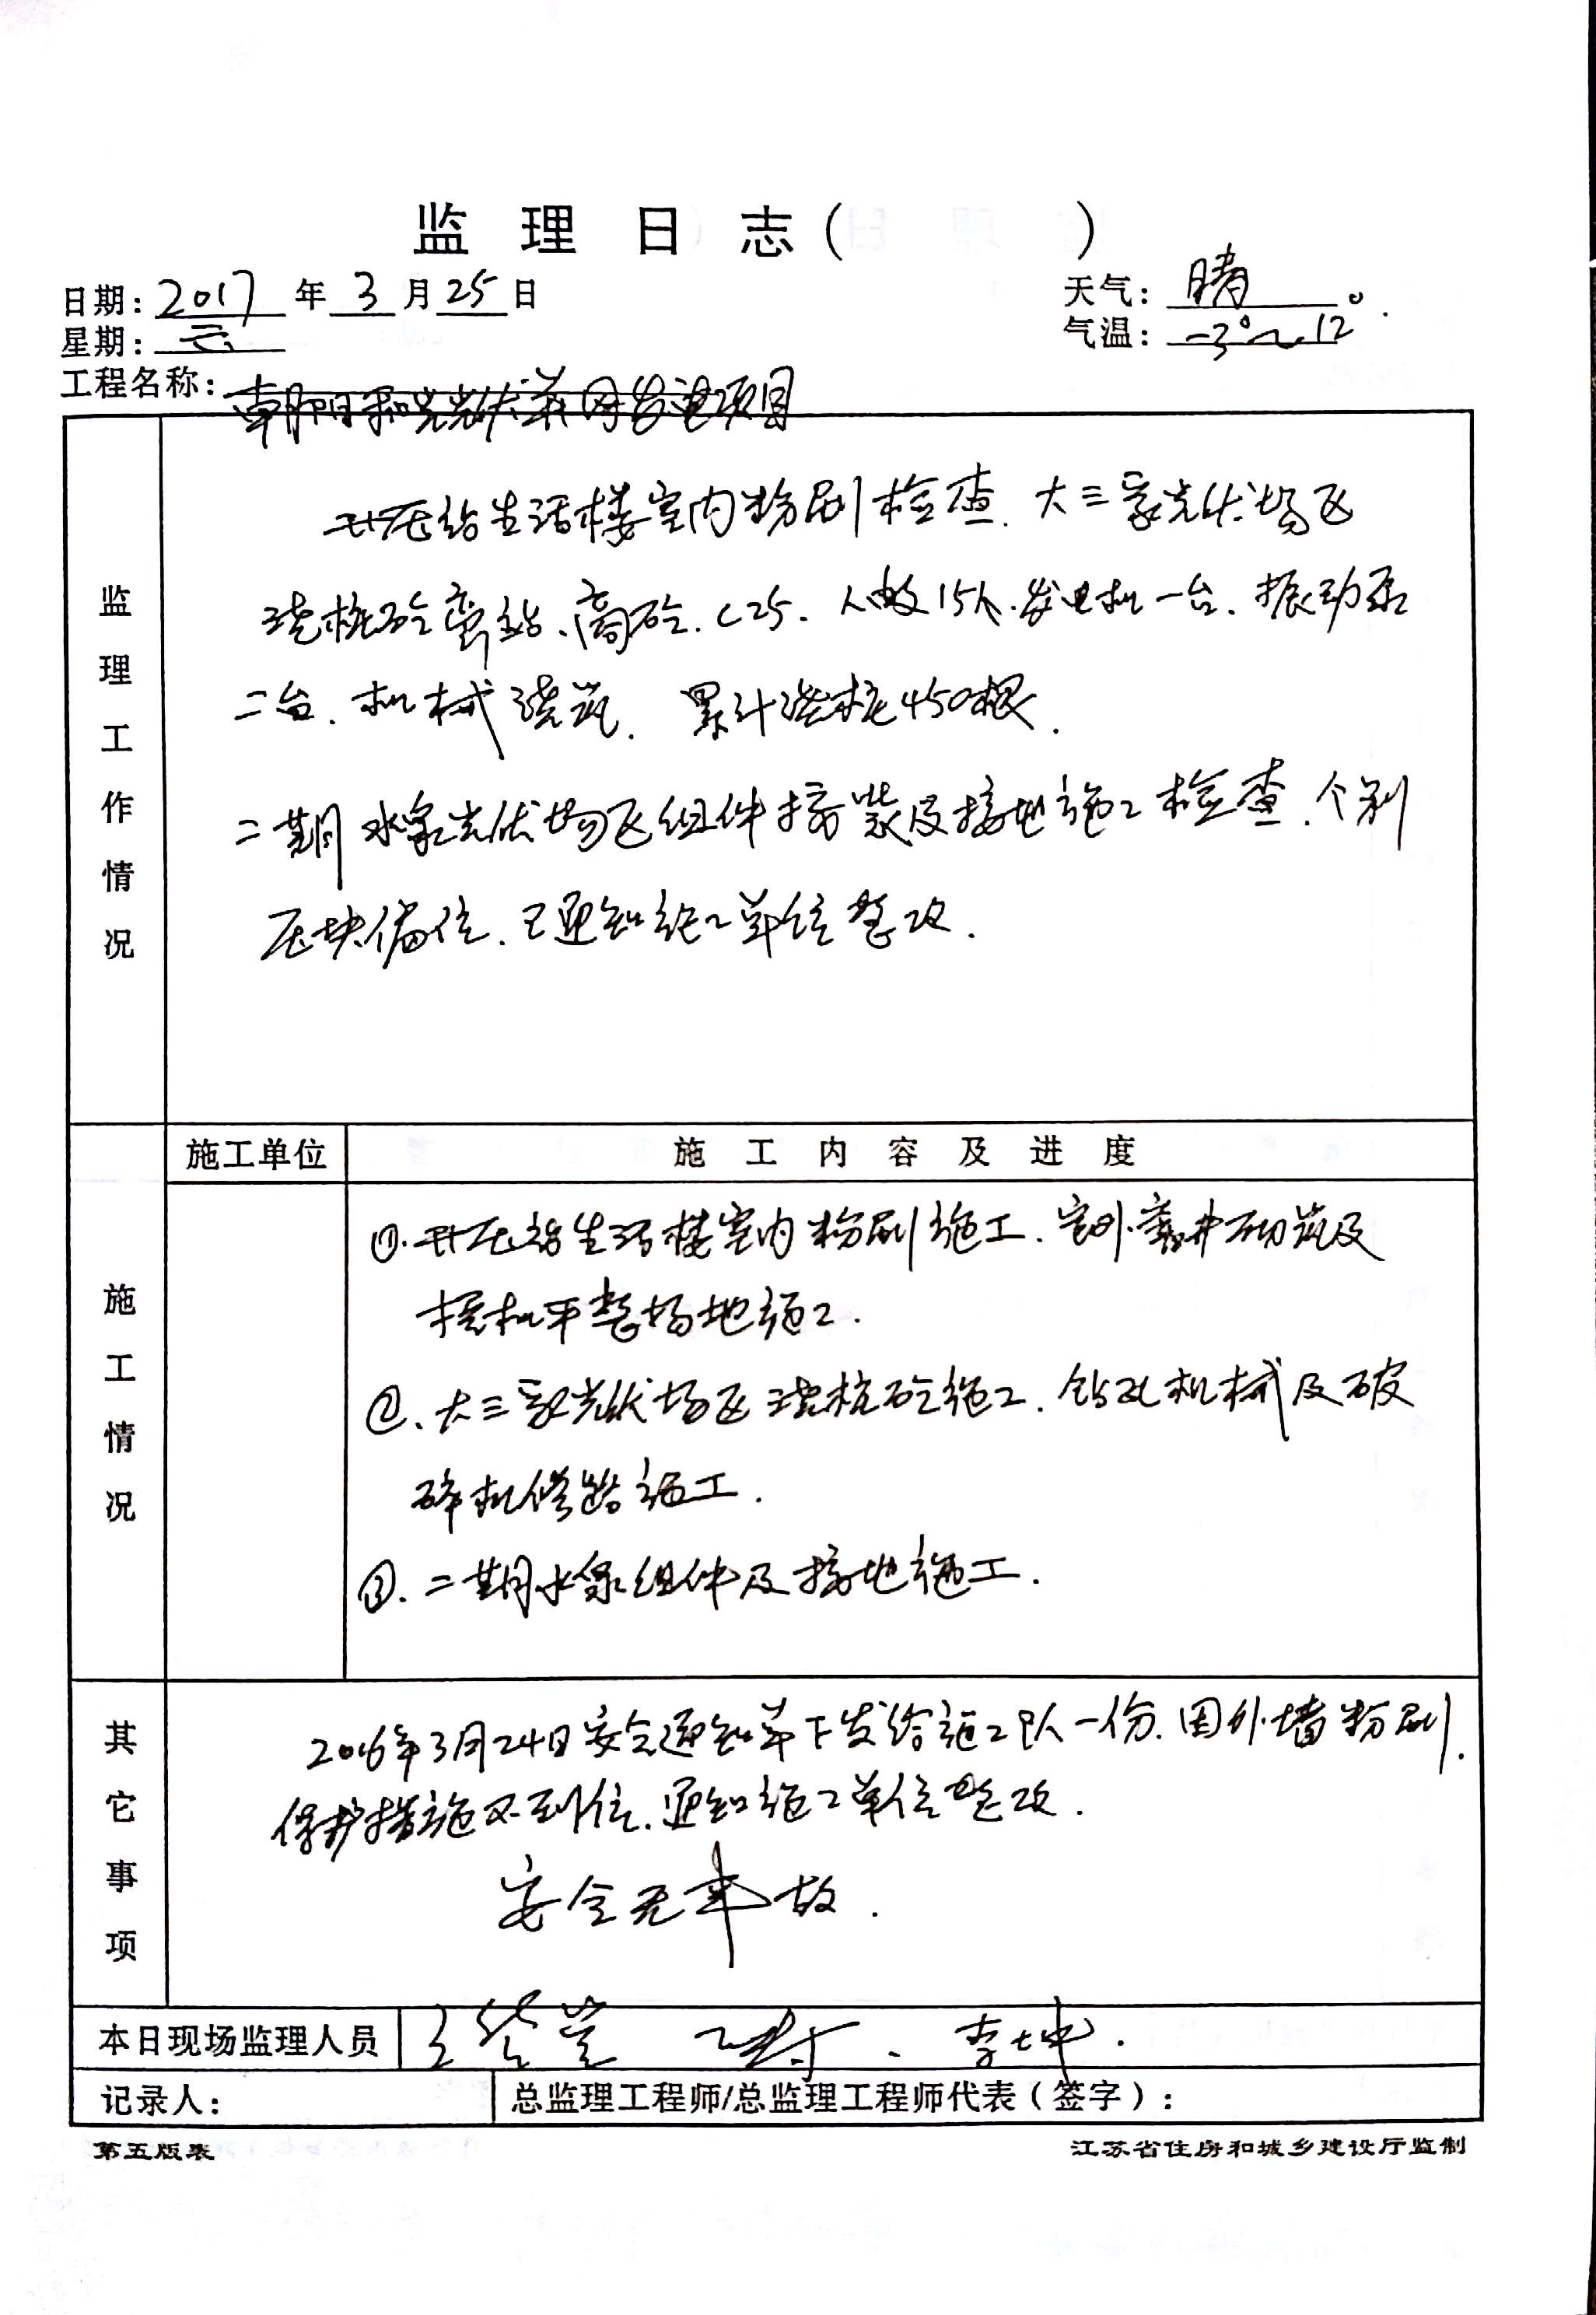 监理日志( )
日期: 2017 年 3 月 25 日 天气: 晴
星期: 六 气温: -3°~12°
工程名称: 朝阳和光光伏并网发电项目
监理工作情况
升压站生活楼室内粉刷检查. 大三家光伏场区
浇桩砼旁站、商砼. C25. 人数15人. 发电机一台. 振动泵
二台. 机械浇筑. 累计浇桩450根.
二期水泉光伏场区组件接装及接地施工检查. 个别
压块偏位. 已通知施工单位整改.
施工单位 施工内容及进度
施工情况
①. 升压站生活楼室内粉刷施工. 室外窨井砌筑及
挖机平整场地施工.
②、大三家光伏场区浇桩砼施工. 钻孔机械及破
碎机修路施工.
③. 二期水泉组件及接地施工.
其它事项
2016年3月24日安全通知单下发给施工队一份. 因外墙粉刷.
保护措施不到位. 通知施工单位整改.
安全无事故.
本日现场监理人员 李坤.
记录人: 总监理工程师/总监理工程师代表(签字):
第五版表 江苏省住房和城乡建设厅监制